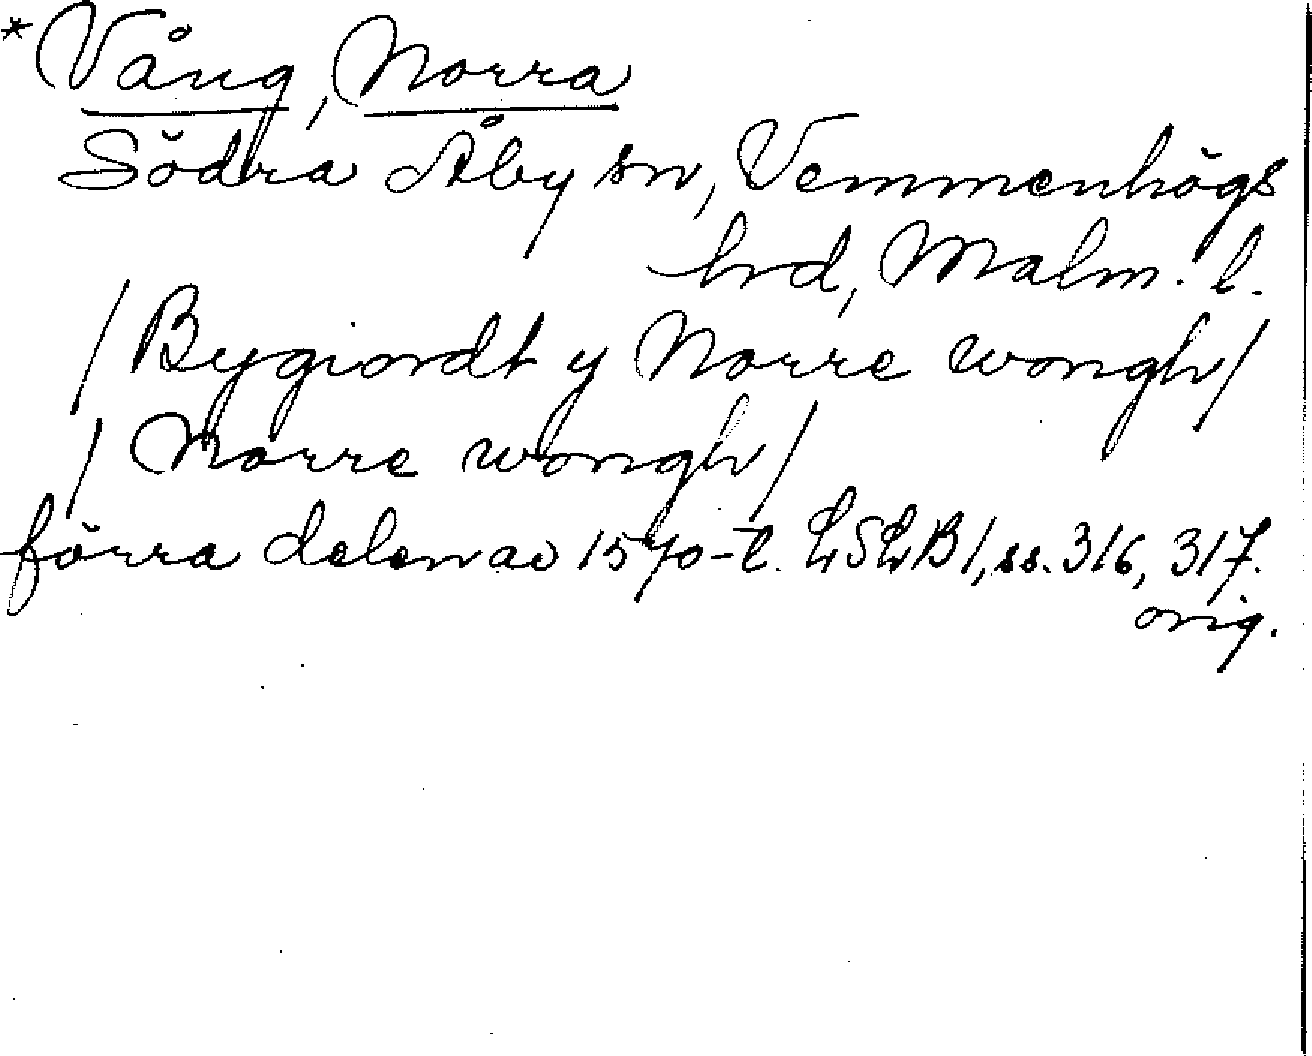 *Vång, Norra
Södra Åby sn, Vemmenhögs
hrd, Malm. l.
/Bygiordt y Norre wongh/
/Norre wongh/
förra delen av 1570-t. LSLB1, ss. 316, 317.
orig.